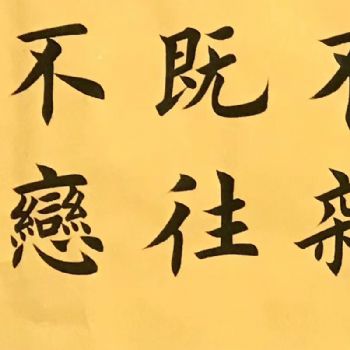 既往
不戀